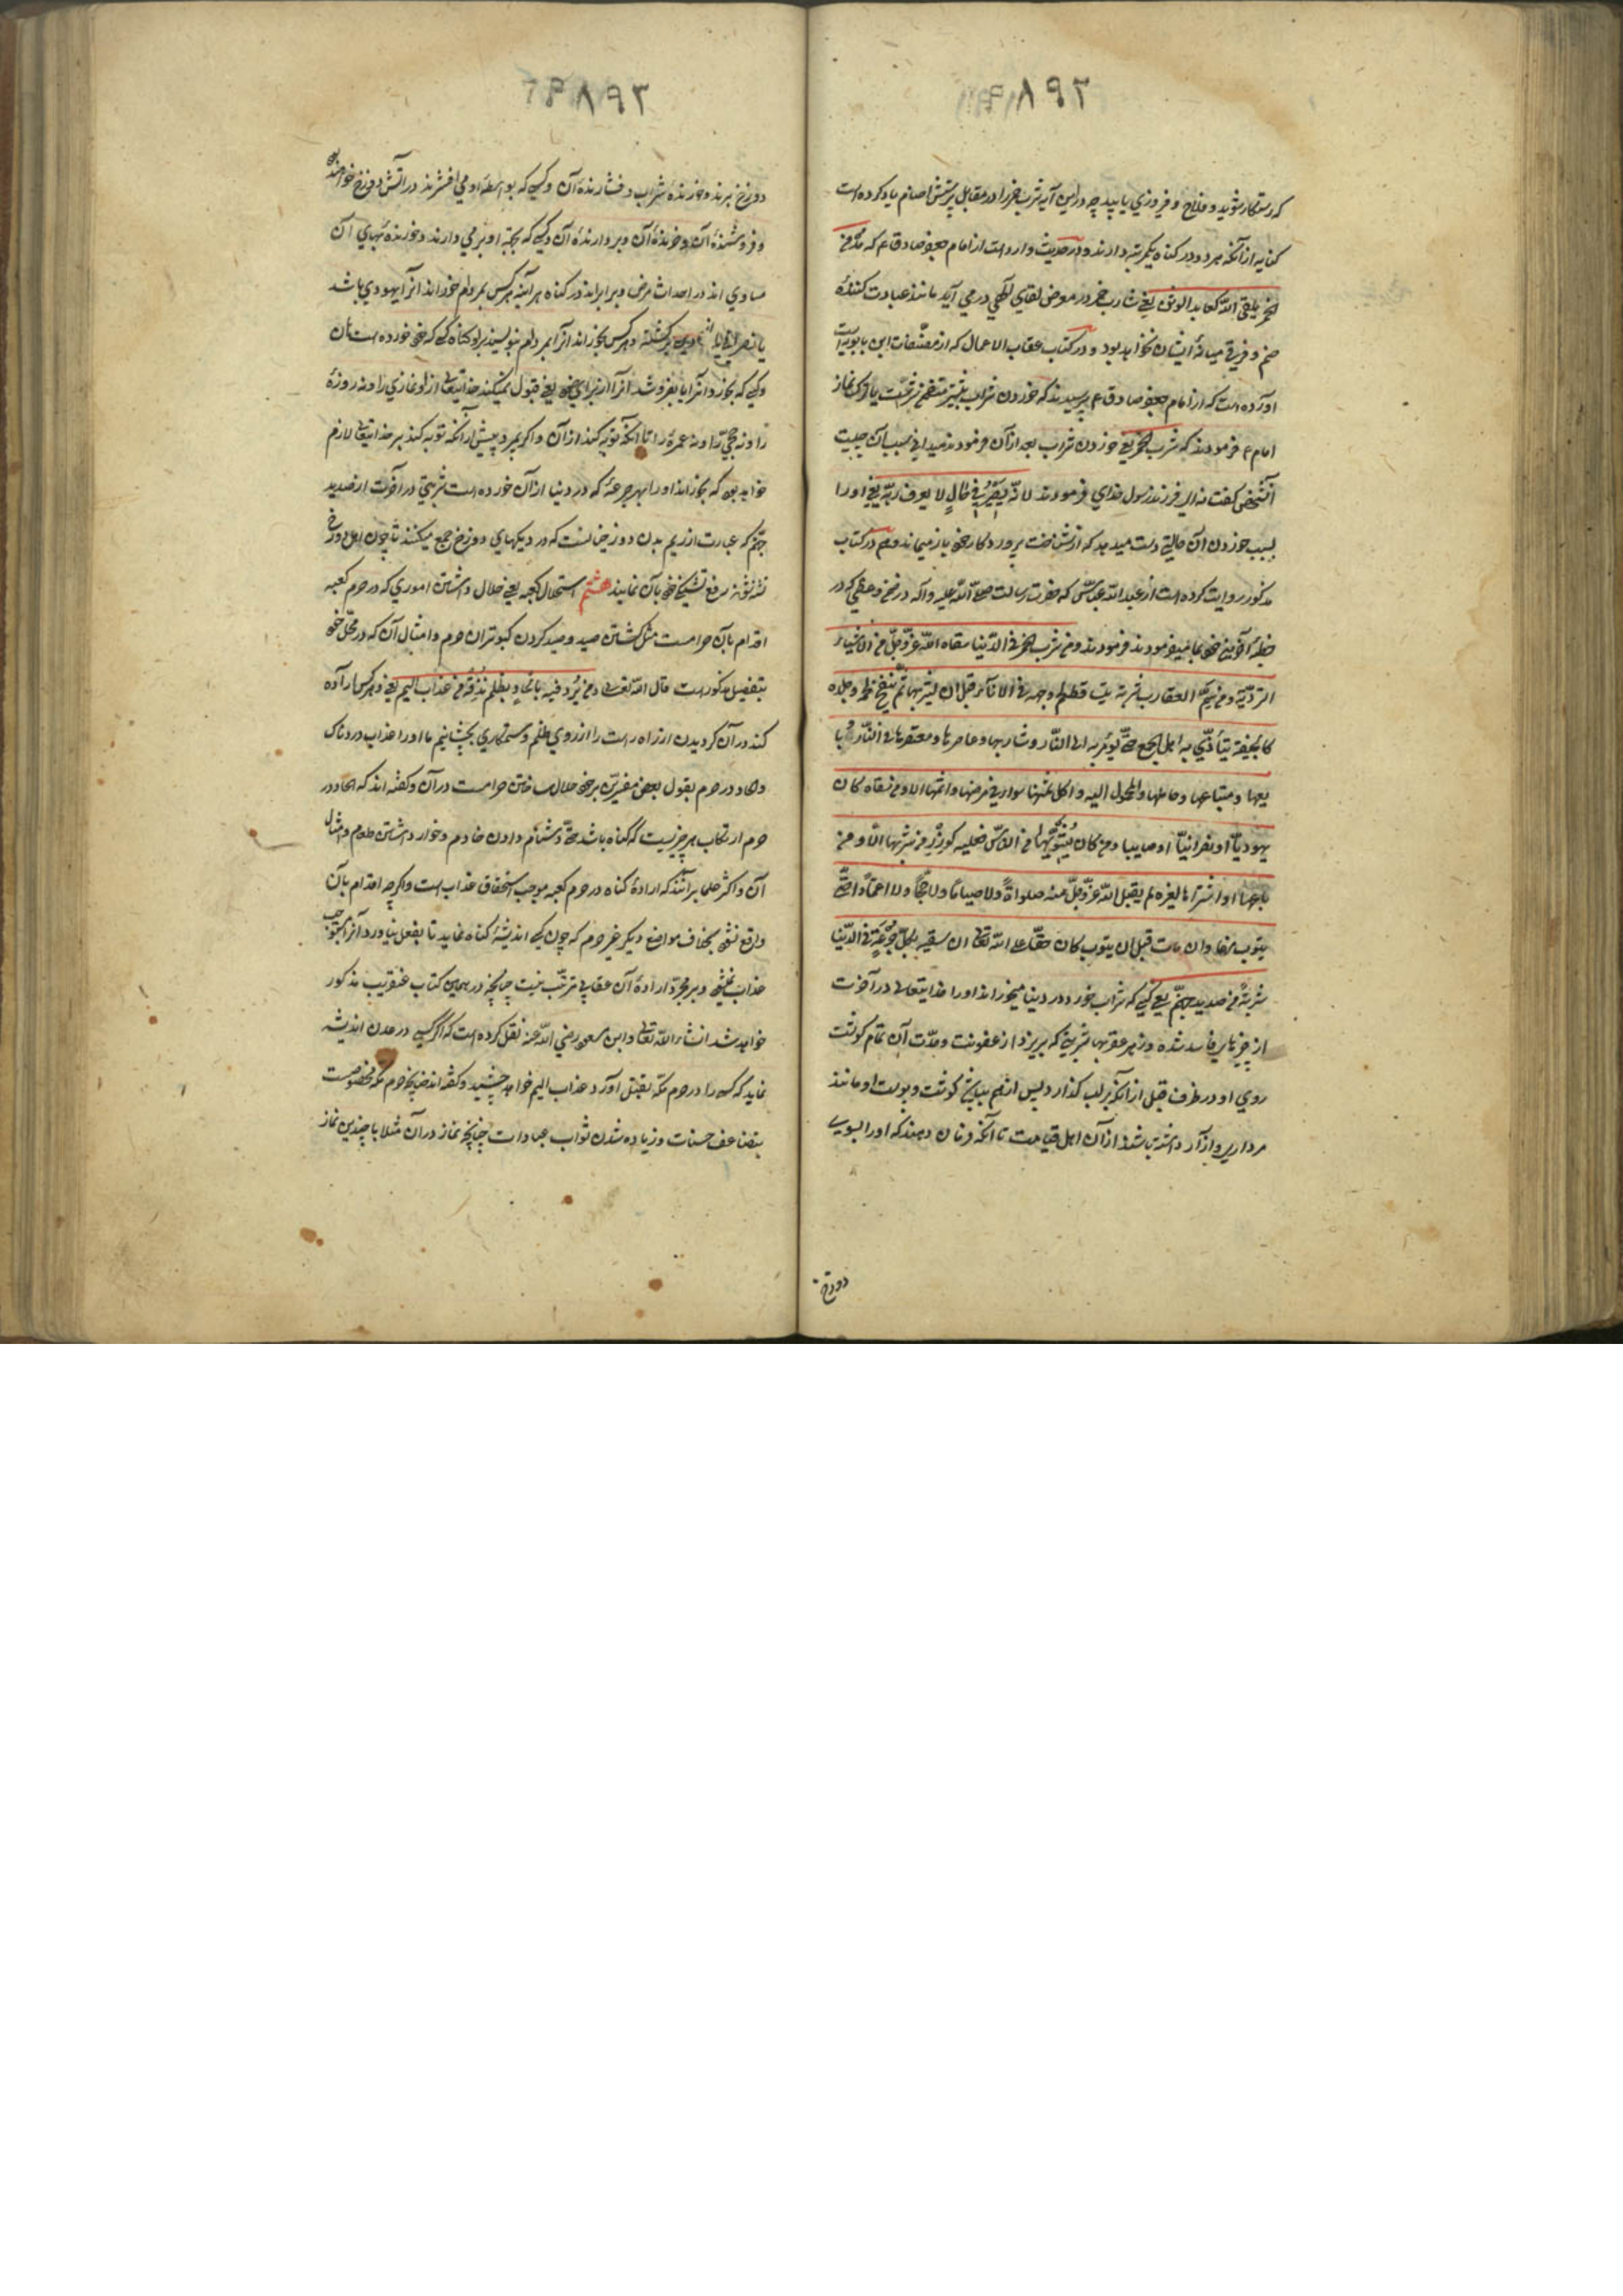 ۳۹۸۹۳
که رستکار شوید و فلاح و فیروزی یابید چه در این آیه شرب خمر را در مقابل پرستش اصنام یاد کرده است
کنایه از آنکه هر دو در کناه یکمرتبه دارند و در حدیث وارد است از امام جعفر صادق ع که مُدمن
الخمر یلقی اللّه کعابد الوثن یعنی شارب خمر در معرض لقای الهی در می آید مانند عبادت کنندهٔ
صنم و فرقی میانهٔ ایشان نخواهد بود و در کتاب عقاب الاعمال که از مصنّفات ابن بابویه است
آورده است که از امام جعفر صادق ع پرسیدند که خوردن شراب بدتر است یا ترک نماز
امام ع فرمودند که شرب الخمر یعنی خوردن شراب بعد از آن فرمودند میدانی سبب آن چیست
آنشخص کفت نه ای فرزند رسول خدای فرمودند لانّه یصیر فی حالٍ لا یعرف ربّه یعنی او را
بسبب خوردن آن حالتی دست میدهد که از شناخت پروردکار خود باز میماند و هم در کتاب
مذکور روایت کرده است از عبد اللّه عبّاس که حضرت رسالت صلّی اللّه علیه و آله در
خطبهٔ آخرین خود فرمودند و من شرب الخمر فی الدّنیا سقاه اللّه عزّ و جلّ من
العقارب شربة یتساقط لحم وجهه فی الاناء قبل ان یشربها ثم یفسخ لحمه و جلده
کالجیفة یتأذّی به اهل الجمع حتّی یؤمر به الی النّار و شاربها و عاصرها و معتصرها فی النّار و با
یعها و مبتاعها و حاملها و المحمول الیه و آکل ثمنها سواء فی عرضها و اثمها الا و من سقاه کان
یهودیّاً او نصرانیّاً او صابیا و من کان من النّاس فعلیه کوزر من شربها الا و من
باعها او اشتراها لغیره لم یقبل اللّه عزّ و جلّ منه صلوةً و لا صیاماً و لا حجّاً و لا اعتماراً حتّی
یتوب منها و ان مات قبل ان یتوب کان حقّاً علی اللّه تعالی ان یسقیه بکلّ جُرعَةٍ فی الدّنیا
شربةً من صدید جهنّم یعنی کسی که شراب خورد در دنیا میخوراند او را خدایتعالی در آخرت
از چیزهای فاسد شده و زهر عقربها شربتی که بریزد از عفونت و حدّت آن تمام کوشت
روی او در ظرف قبل از آنکه بر لب کذارد پس از هم بپاشد کوشت و پوست او مانند
مرداری و آزار داشته باشند از آن اهل قیامت تا آنکه فرمان دهند که او را بسوی
دوزخ
۳۹۸۹۴
دوزخ برند و خورندهٔ شراب و فشارندهٔ آن و کسی که بواسطهٔ او می افشرند در آتش دوزخ خواهند بود
و فروشندهٔ آن و خرندهٔ آن و بردارندهٔ آن و کسی که بجهة او بر می دارند و خورندهٔ بهای آن
مساوی اند در احداث مرض و برابراند در کناه هر آینه هر کس بمردم خوراند آنرا یهودی باشد
یا نصرانی یا از دین برکشته و هر کس بخوراند آنرا بمردم بنویسند بر او کناه کسی که خود خورده است آن
و کسی که بخرد آنرا یا بفروشد آنرا از برای غیر یعنی قبول نمیکند خدایتعالی از او نمازی را و نه روزهٔ
را و نه حجّی را و نه عمرهٔ را تا آنکه توبه کند از آن و اکر بمیرد پیش از آنکه توبه کند بر خدایتعالی لازم
خواهد بود که بخوراند او را بهر جرعهٔ که در دنیا از آن خورده است شربتی در آخرت از صدید
جهنّم که عبارت از ریم بدن دوزخیانست که در دیکهای دوزخ جمع میکنند تا چون اهل دوزخ
تشنه شوند رفع تشنکی خود بآن نمایند هشتم استحلال کعبه یعنی حلال داشتن اموری که در حرم کعبه
اقدام بآن حرامست مثل کشتن صید و صید کردن کبوتران حرم و امثال آن که در محلّ خود
بتفصیل مذکور است قال اللّه تعالی و من یُرِد فیه بالحادٍ بظلم نُذِقْهُ من عذاب الیم یعنی و هر کس اراده
کند در آن کردیدن از راه راست را از روی ظلم و ستمکاری بچشانیم ما او را عذاب دردناک
و الحاد در حرم بقول بعض مفسّرین بر خود حلال ساختن حرامست در آن و کفته اند که الحاد در
حرم ارتکاب هر چیزیست که کناه باشد حتّی دشنام دادن خادم و خوار داشتن طعام و امثال
آن و اکثر علما برآنند که ارادهٔ کناه در حرم کعبه موجب استحقاق عذاب است و اکر چه اقدام بآن
واقع نشود بخلاف مواضع دیکر غیر حرم که چون کسی اندیشهٔ کناه نماید تا بفعل نیاورد آنرا مستوجب
عذاب نمیشود و بر مجرّد ارادهٔ آن عقابی مترتّب نیست چنانچه در همین کتاب عنقریب مذکور
خواهد شد انشاء اللّه تعالی و ابن مسعود رضی اللّه عنه نقل کرده است که اکر کسی در عدن اندیشه
نماید که کسی را در حرم مکّه بقتل آورد عذاب الیم خواهد چشید و کفته اند چنانچه حرم مکّه مخصوصست
بتضاعف حسنات و زیاده شدن ثواب عبادات چنانچه نماز در آن مثلا با چندین نماز